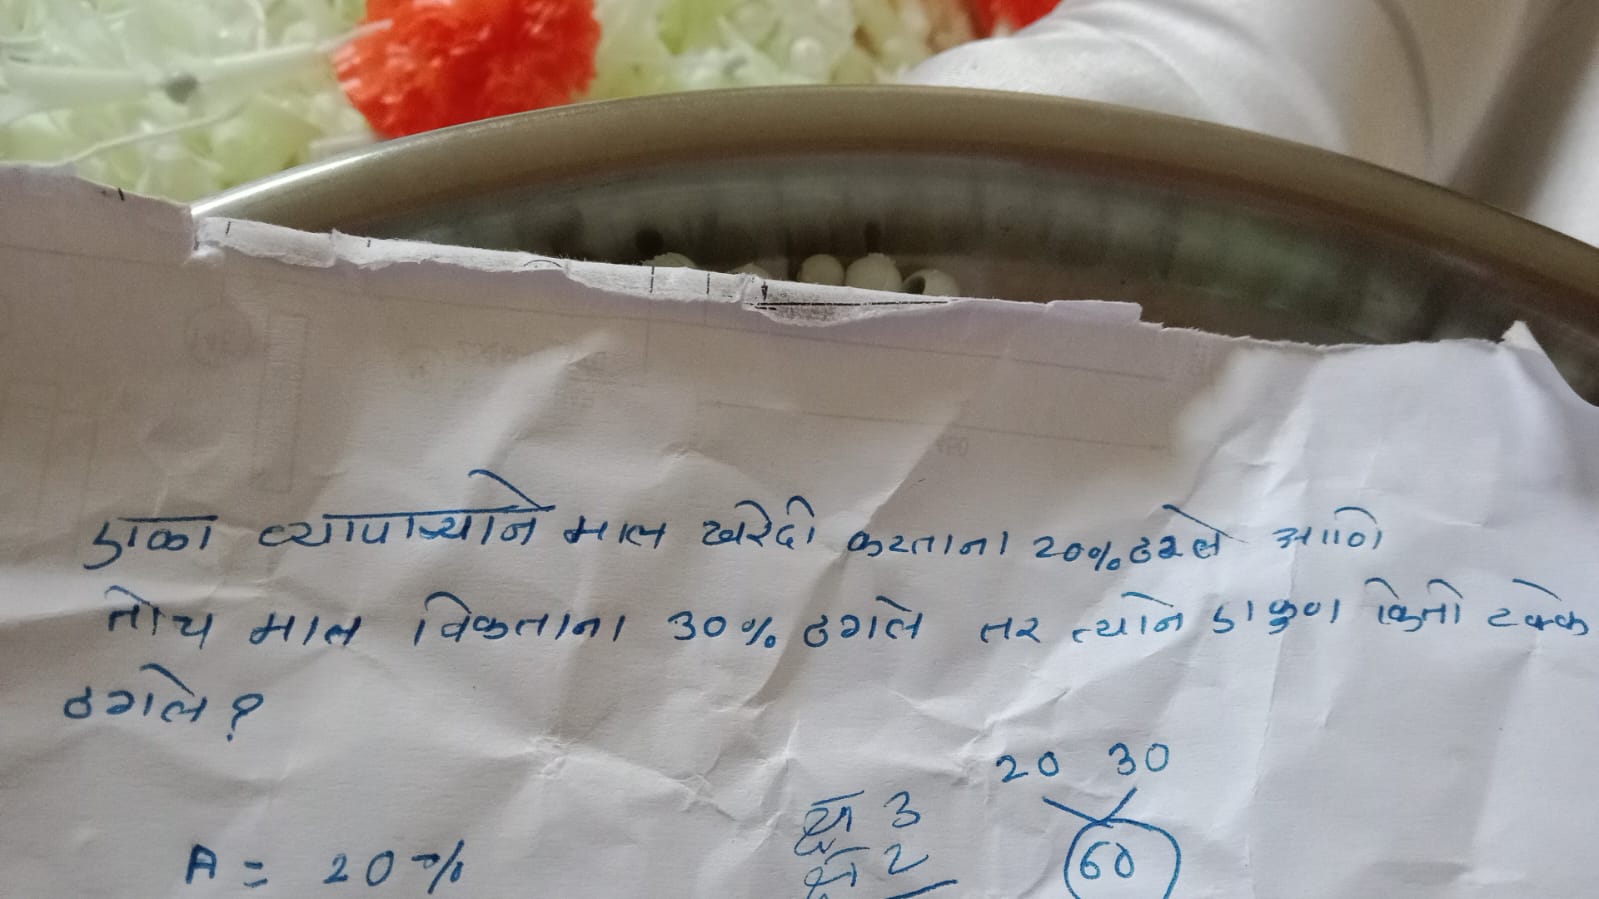 एका व्यापाऱ्याने माल खरेदी करताना 20% ठगले आणि
तोच माल विकताना 30% ठगले तर त्याने एकुण किती टक्के
ठगले ?
20 30
सू 3
60
A = 20%
2